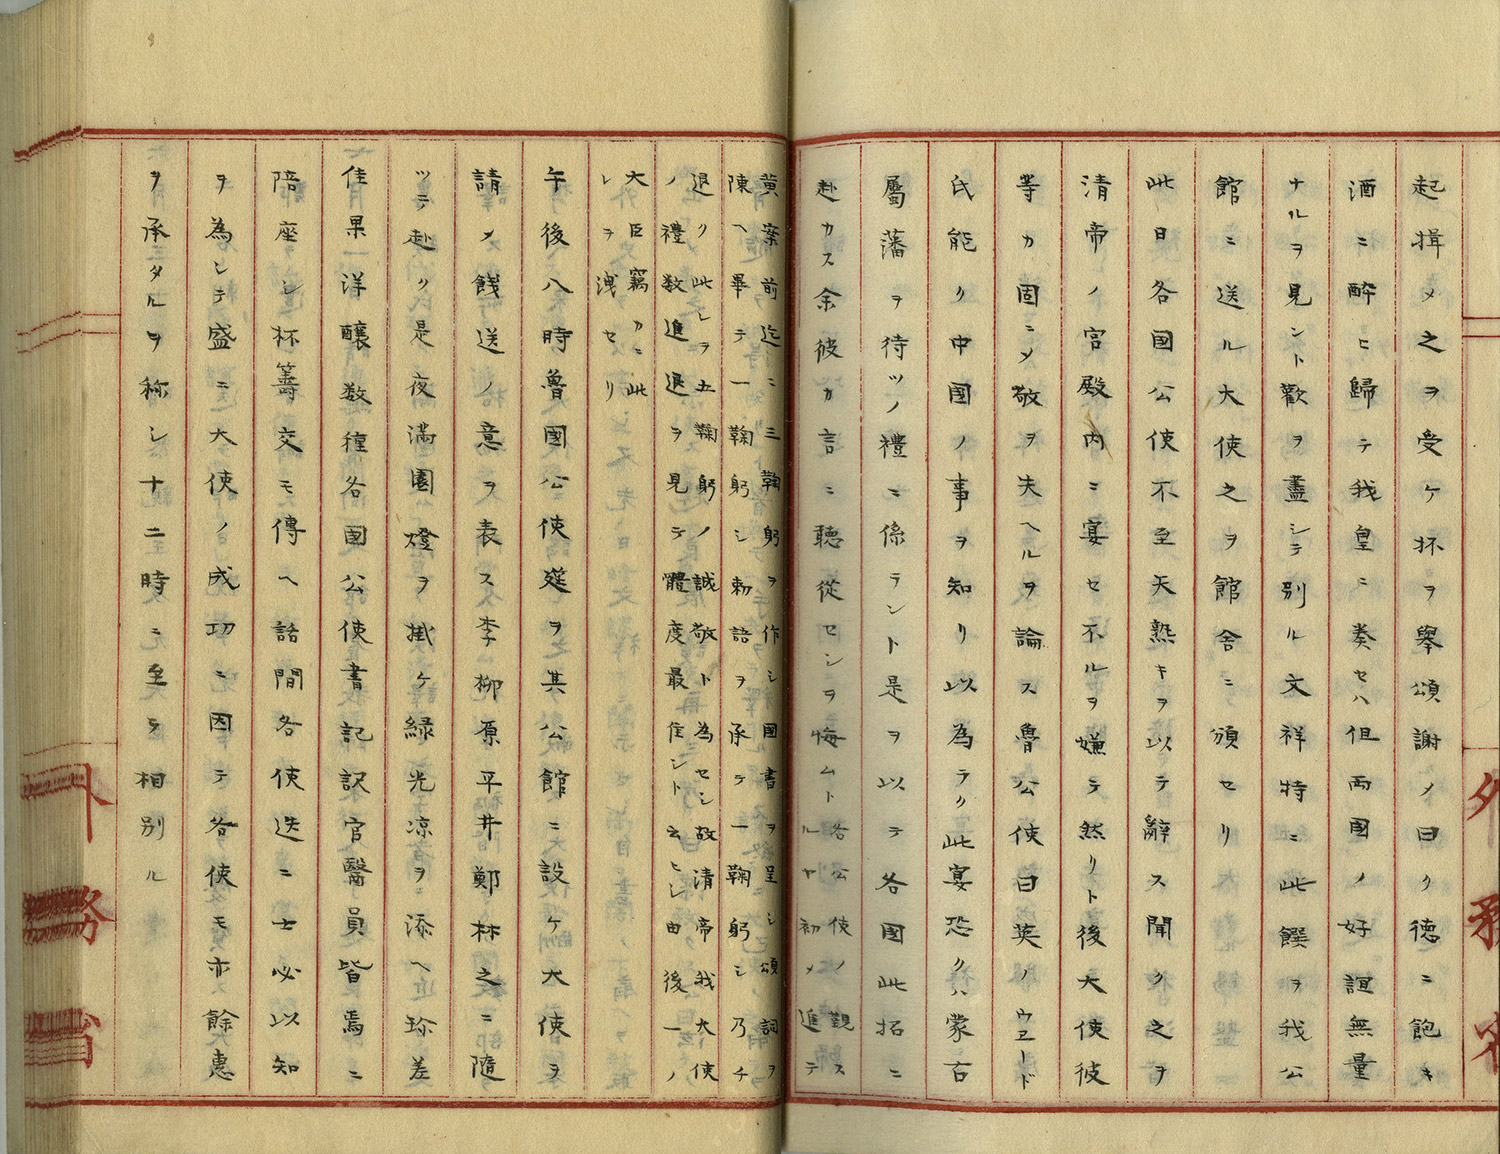 起揖メ之ヲ受ケ抔ヲ擧頌謝ノ曰ク徳ニ飽キ
酒ニ酔ヒ歸テ我皇ニ奏セハ但両國ノ好誼無量
ナルヲ見ント歡ヲ盡シテ別ル文祥特ニ此饌ヲ我公
館ニ送ル大使之ヲ館舎ニ頒セリ
此日各国公使不至天熱キヲ以テ辭ス聞ク之ヲ
清帝ノ宮殿内ニ宴セ不ルヲ嫌テ然リト後大使彼
等カ固ニメ敬ヲ失ヘルヲ論ス魯公使曰英ノウヱード
氏能ク中国ノ事ヲ知リ以為ラク此宴恐クハ蒙古
屬藩ヲ待ツノ禮ニ係ラント是ヲ以テ各國此招ニ
赴カス余彼カ言ニ聴従センヲ悔ムト各公使ノ觀ス
ルヤ初メ進テ
黄案前迄ニ三鞠躬ヲ作シ國書ヲ呈シ頌詞ヲ
陳ヘ畢テ一鞠躬シ勅語ヲ承テ一鞠躬シ乃チ
退ク此レヲ五鞠躬ノ誠敬ト為セシ故清帝我大使
ノ禮数進退ヲ見テ體度最佳ント云ヒシ由後一ノ
大臣竊カニ此
レヲ洩セリ
午後八時魯國公使筵ヲ其公館ニ設ケ大使ヲ
請メ餞送ノ意ヲ表ス李柳原平井鄭林之ニ隨
ツテ赴ク是夜満園燈ヲ掛ケ緑光凉ヲ添ヘ近珍差
佳果一洋釀数種各國公使書記訳官醫員皆焉ニ
陪座シ杯籌交モ傳ヘ話間各使迭ニ士必以知
ヲ為シテ盛ニ大使ノ成功ニ因テ各使モ亦餘惠
ヲ承タルヲ称シ十二時ニ至テ相別ル
外務省
外務省